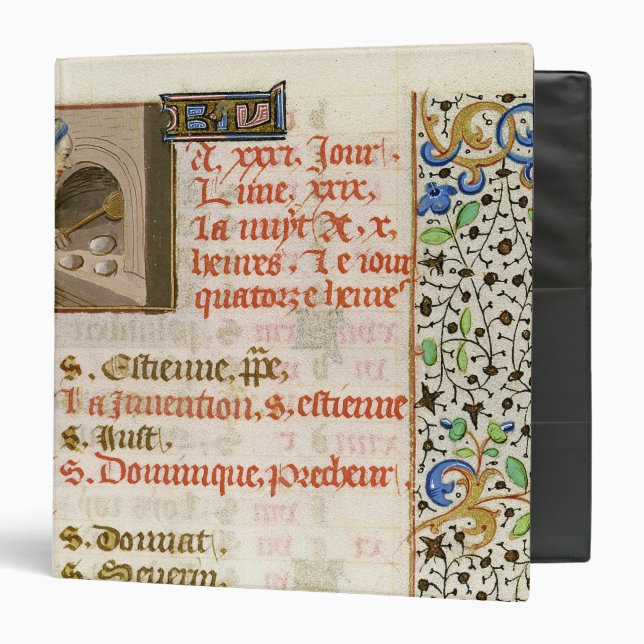 A, xxxi, Jour,
Lune, xxix,
La nuyt A, x,
heures, Le jour
quatorze heure
S. Estienne, ppe,
La Invention, S, estienne
S. Just,
S. Dominique, precheur
S. Donnat,
S. Severin,